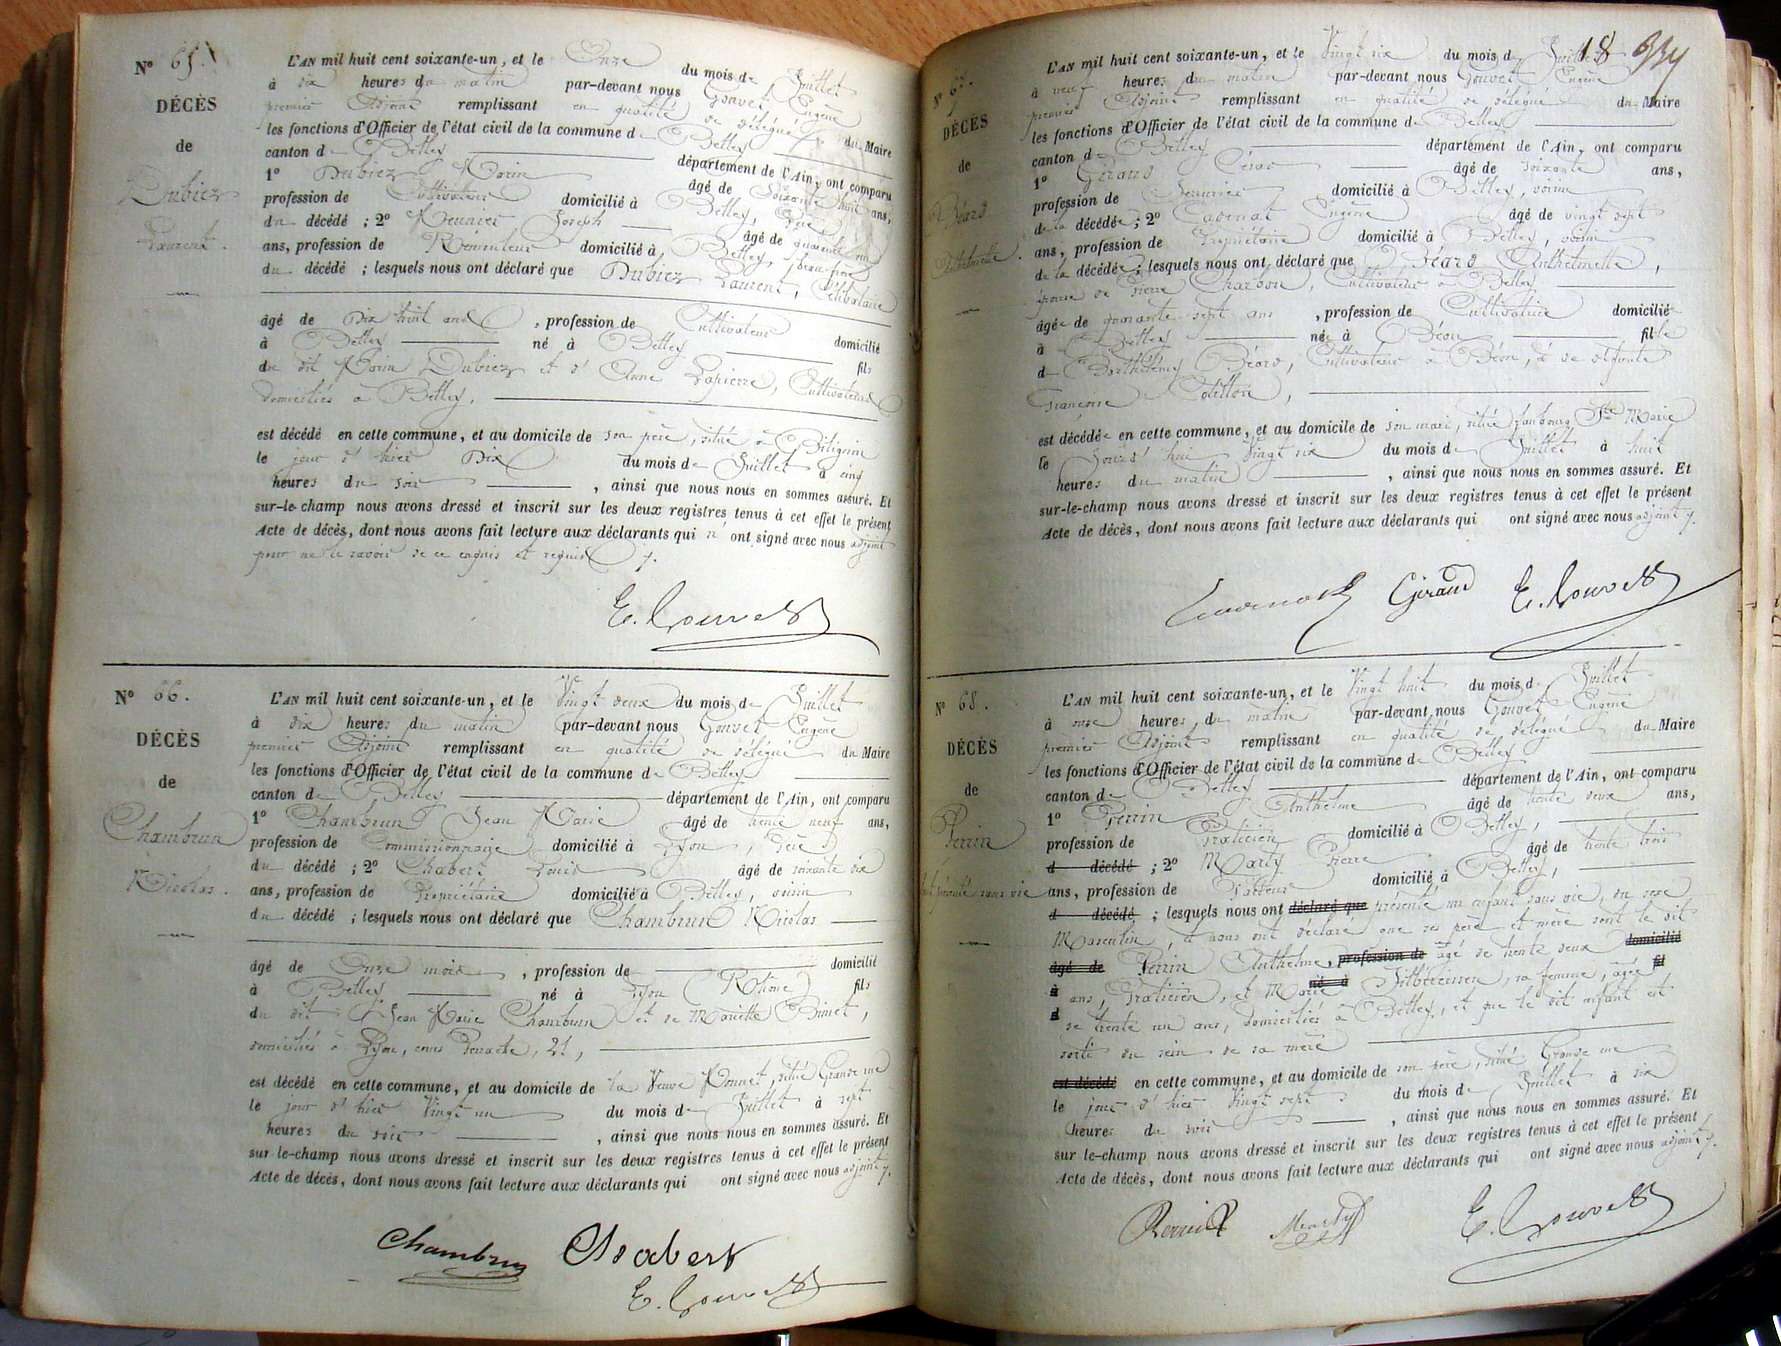 N° 65.
DÉCÈS
de
Dubiez
Laurent.
L'AN mil huit cent soixante-un, et le Onze du mois de Juillet
à dix heures du matin par-devant nous Gouvet Eugène
premier Adjoint remplissant en qualité de délégué du Maire
les fonctions d'Officier de l'état civil de la commune de Belley
canton de Belley département de l'Ain, ont comparu
1° Dubiez Morin âgé de Soixante huit ans,
profession de Cultivateur domicilié à Belley, Père
du décédé ; 2° Meunier Joseph âgé de quarante un
ans, profession de Rémouleur domicilié à Belley, beau frère
du décédé ; lesquels nous ont déclaré que Dubiez Laurent, Célibataire
âgé de Dix huit ans, profession de Cultivateur domicilié
à Belley né à Belley fils
du dit Morin Dubiez et d' Anne Lapierre, Cultivateurs
domiciliés à Belley,
est décédé en cette commune, et au domicile de son père, située à Billignin
le jour d'hier Dix du mois de Juillet à cinq
heures du soir, ainsi que nous nous en sommes assuré. Et
sur-le-champ nous avons dressé et inscrit sur les deux registres tenus à cet effet le présent
Acte de décès, dont nous avons fait lecture aux déclarants qui n' ont signé avec nous adjoint
pour ne le savoir de ce enquis et requis
E. Gouvet
N° 66.
DÉCÈS
de
Chambrun
Nicolas.
L'AN mil huit cent soixante-un, et le Vingt deux du mois de Juillet
à dix heures du matin par-devant nous Gouvet Eugène
premier Adjoint remplissant en qualité de délégué du Maire
les fonctions d'Officier de l'état civil de la commune de Belley
canton de Belley département de l'Ain, ont comparu
1° Chambrun Jean Marie âgé de trente neuf ans,
profession de Commissionnaire domicilié à Lyon, Père
du décédé ; 2° Chabert Louis âgé de soixante dix
ans, profession de Propriétaire domicilié à Belley, voisin
du décédé ; lesquels nous ont déclaré que Chambrun Nicolas
âgé de Onze mois, profession de domicilié
à Belley né à Lyon (Rhône) fils
du dit Jean Marie Chambrun et de Mariette Binet,
domiciliés à Lyon, cours Perrache, 21,
est décédé en cette commune, et au domicile de la Veuve Monnet, situé Grande rue
le jour d'hier Vingt un du mois de Juillet à sept
heures du soir, ainsi que nous nous en sommes assuré. Et
sur le-champ nous avons dressé et inscrit sur les deux registres tenus à cet effet le présent
Acte de décès, dont nous avons fait lecture aux déclarants qui ont signé avec nous adjoint
Chambrun Chabert
E. Gouvet
18
N° 67.
DÉCÈS
de
Béard
Anthelmette.
L'AN mil huit cent soixante-un, et le Vingt six du mois de Juillet
à neuf heures du matin par-devant nous Gouvet Eugène
premier Adjoint remplissant en qualité de délégué du Maire
les fonctions d'Officier de l'état civil de la commune de Belley
canton de Belley département de l'Ain, ont comparu
1° Giraud César âgé de soixante ans,
profession de domicilié à Belley, voisin
de la décédée ; 2° Eugène âgé de vingt sept
ans, profession de Propriétaire domicilié à Belley, voisin
de la décédée ; lesquels nous ont déclaré que Béard Anthelmette,
épouse de Pierre Chardon, Cultivateur à Belley
âgée de quarante sept ans, profession de Cultivatrice domiciliée
à Belley née à Béon fille
de Barthélemy Béard, Cultivateur à Béon, & de défunte
Françoise
est décédée en cette commune, et au domicile de son mari, situé faubourg Ste Marie
le Jourd'hui Vingt six du mois de Juillet à huit
heures du matin, ainsi que nous nous en sommes assuré. Et
sur-le-champ nous avons dressé et inscrit sur les deux registres tenus à cet effet le présent
Acte de décès, dont nous avons fait lecture aux déclarants qui ont signé avec nous adjoint
Giraud E. Gouvet
N° 68.
DÉCÈS
de
Perrin
présenté sans vie
L'AN mil huit cent soixante-un, et le Vingt huit du mois de Juillet
à onze heures du matin par-devant nous Gouvet Eugène
premier Adjoint remplissant en qualité de délégué du Maire
les fonctions d'Officier de l'état civil de la commune de Belley
canton de Belley département de l'Ain, ont comparu
1° Perrin Anthelme âgé de trente deux ans,
profession de Praticien domicilié à Belley,
d décédé ; 2° Marty Pierre âgé de trente trois
ans, profession de Facteur domicilié à Belley,
d décédé ; lesquels nous ont déclaré que présenté un enfant sans vie, du sexe
Masculin, et nous ont déclaré que ses père et mère sont le dit
âgé de Perrin Anthelme, profession de âgé de trente deux domicilié
à ans, Praticien, et Marie né à sa femme, âgée fil
d de trente un ans, domiciliés à Belley, et que le dit enfant est
sorti du sein de sa mère
est décédé en cette commune, et au domicile de son père, situé Grande rue
le jour d'hier Vingt sept du mois de Juillet à six
heures du soir, ainsi que nous nous en sommes assuré. Et
sur le-champ nous avons dressé et inscrit sur les deux registres tenus à cet effet le présent
Acte de décès, dont nous avons fait lecture aux déclarants qui ont signé avec nous adjoint
Perrin Marty E. Gouvet